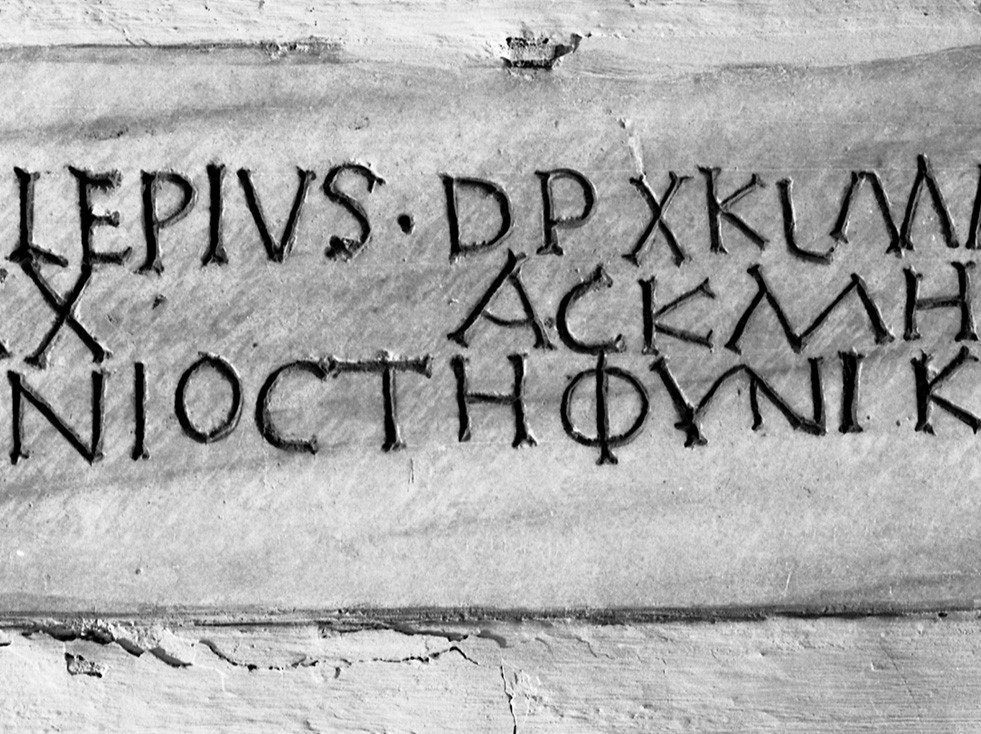 LEPIVS · DP XKUM
X ΑCΚΜΗ
ΝΙΟCΤΗΦΥΝΙΚ